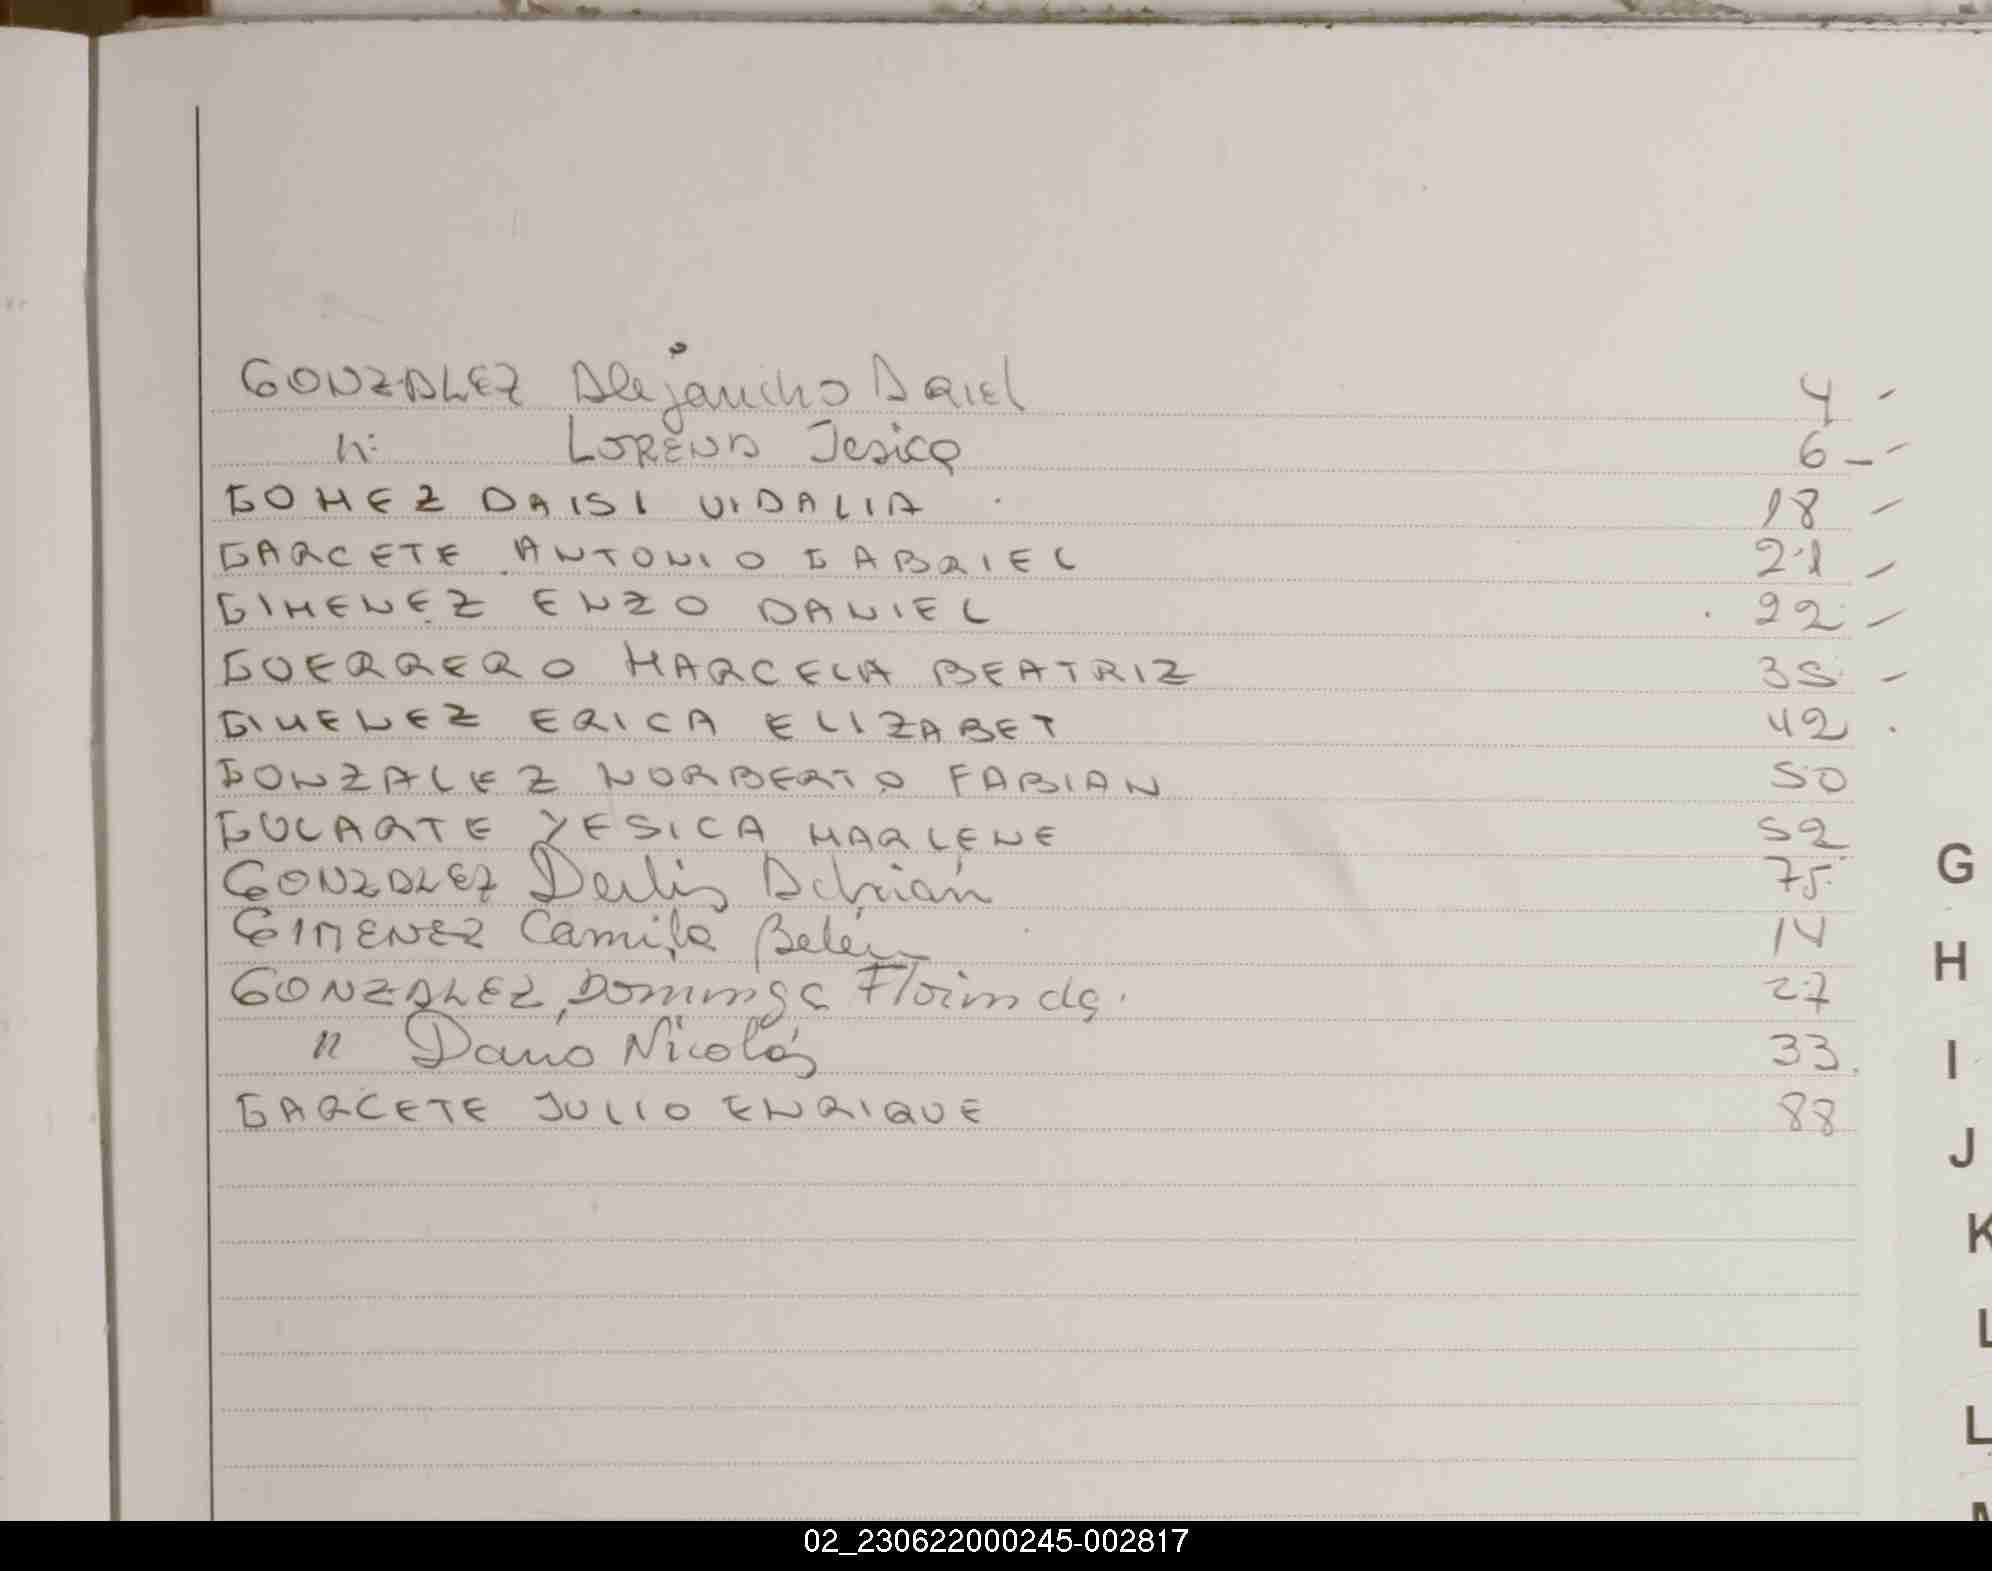 GONZALEZ Alejandro Dariel 4 -
n: LORENA Jesica 6 - -
GOMEZ DAISI VIDALIA 18 -
GARCETE ANTONIO GABRIEL 21 -
GIMENEZ ENZO DANIEL 22 -
GUERRERO MARCELA BEATRIZ 35 -
GIMENEZ ERICA ELIZABET 42 .
GONZALEZ NORBERTO FABIAN 50
GULARTE YESICA MARLENE 52
GONZALEZ Derlis Adrián 75
GIMENEZ Camila Belén 14
GONZALEZ, Dominga Florinda. 27
n Darío Nicolás 33.
GARCETE JULIO ENRIQUE 88
G
H
I
J
K
L
L
02_230622000245-002817